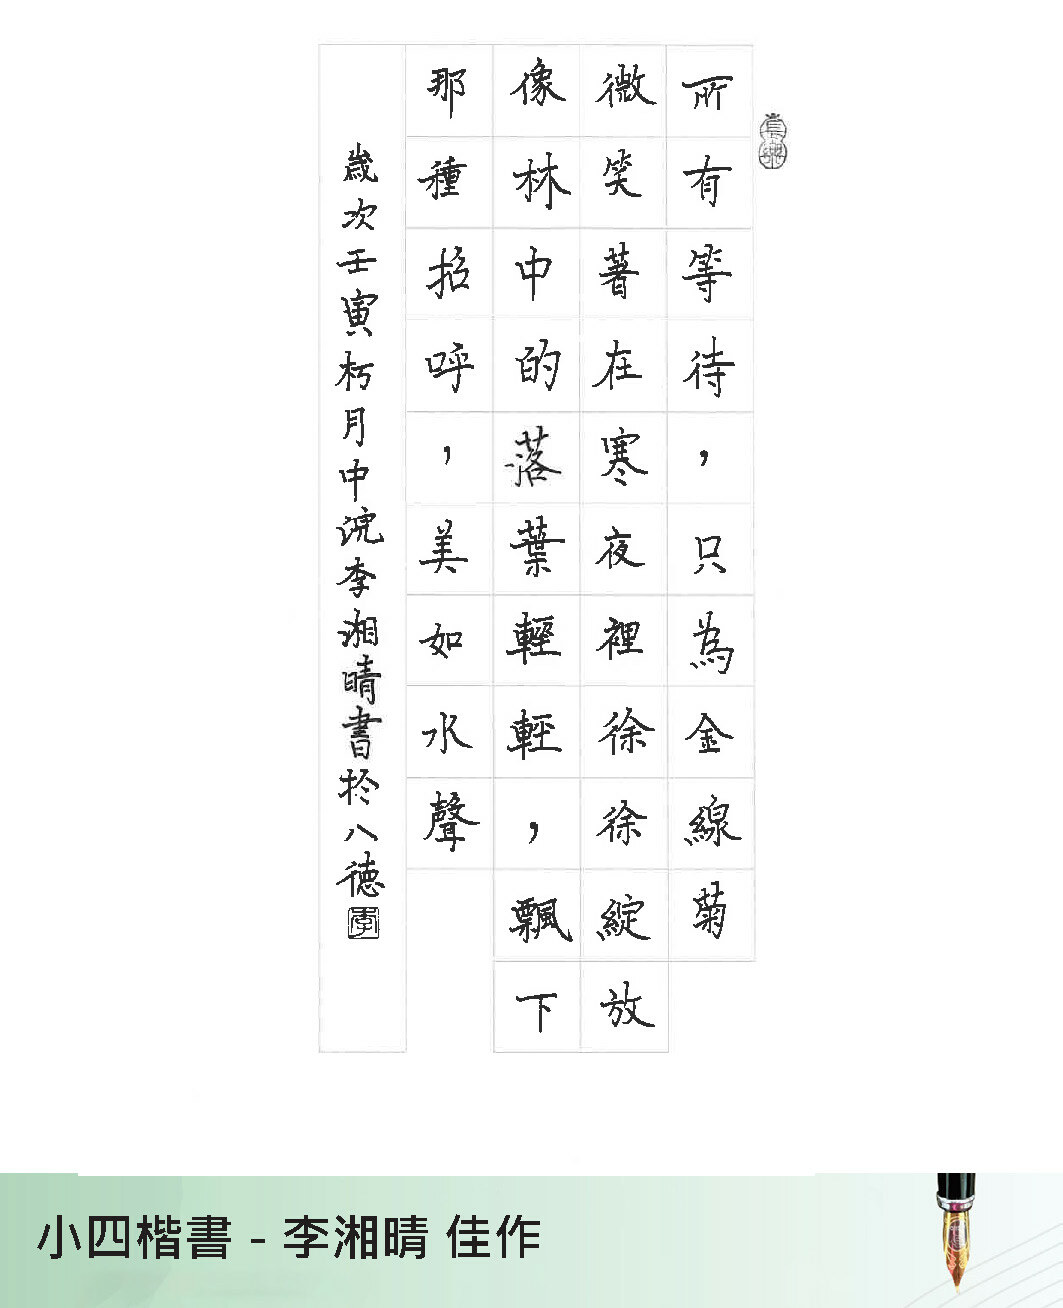 所有等待，只為金線菊
微笑著在寒夜裡徐徐綻放
像林中的落葉輕輕，飄下
那種招呼，美如水聲
歲次壬寅杇月中浣李湘晴書於八德
李
小四楷書 - 李湘晴 佳作